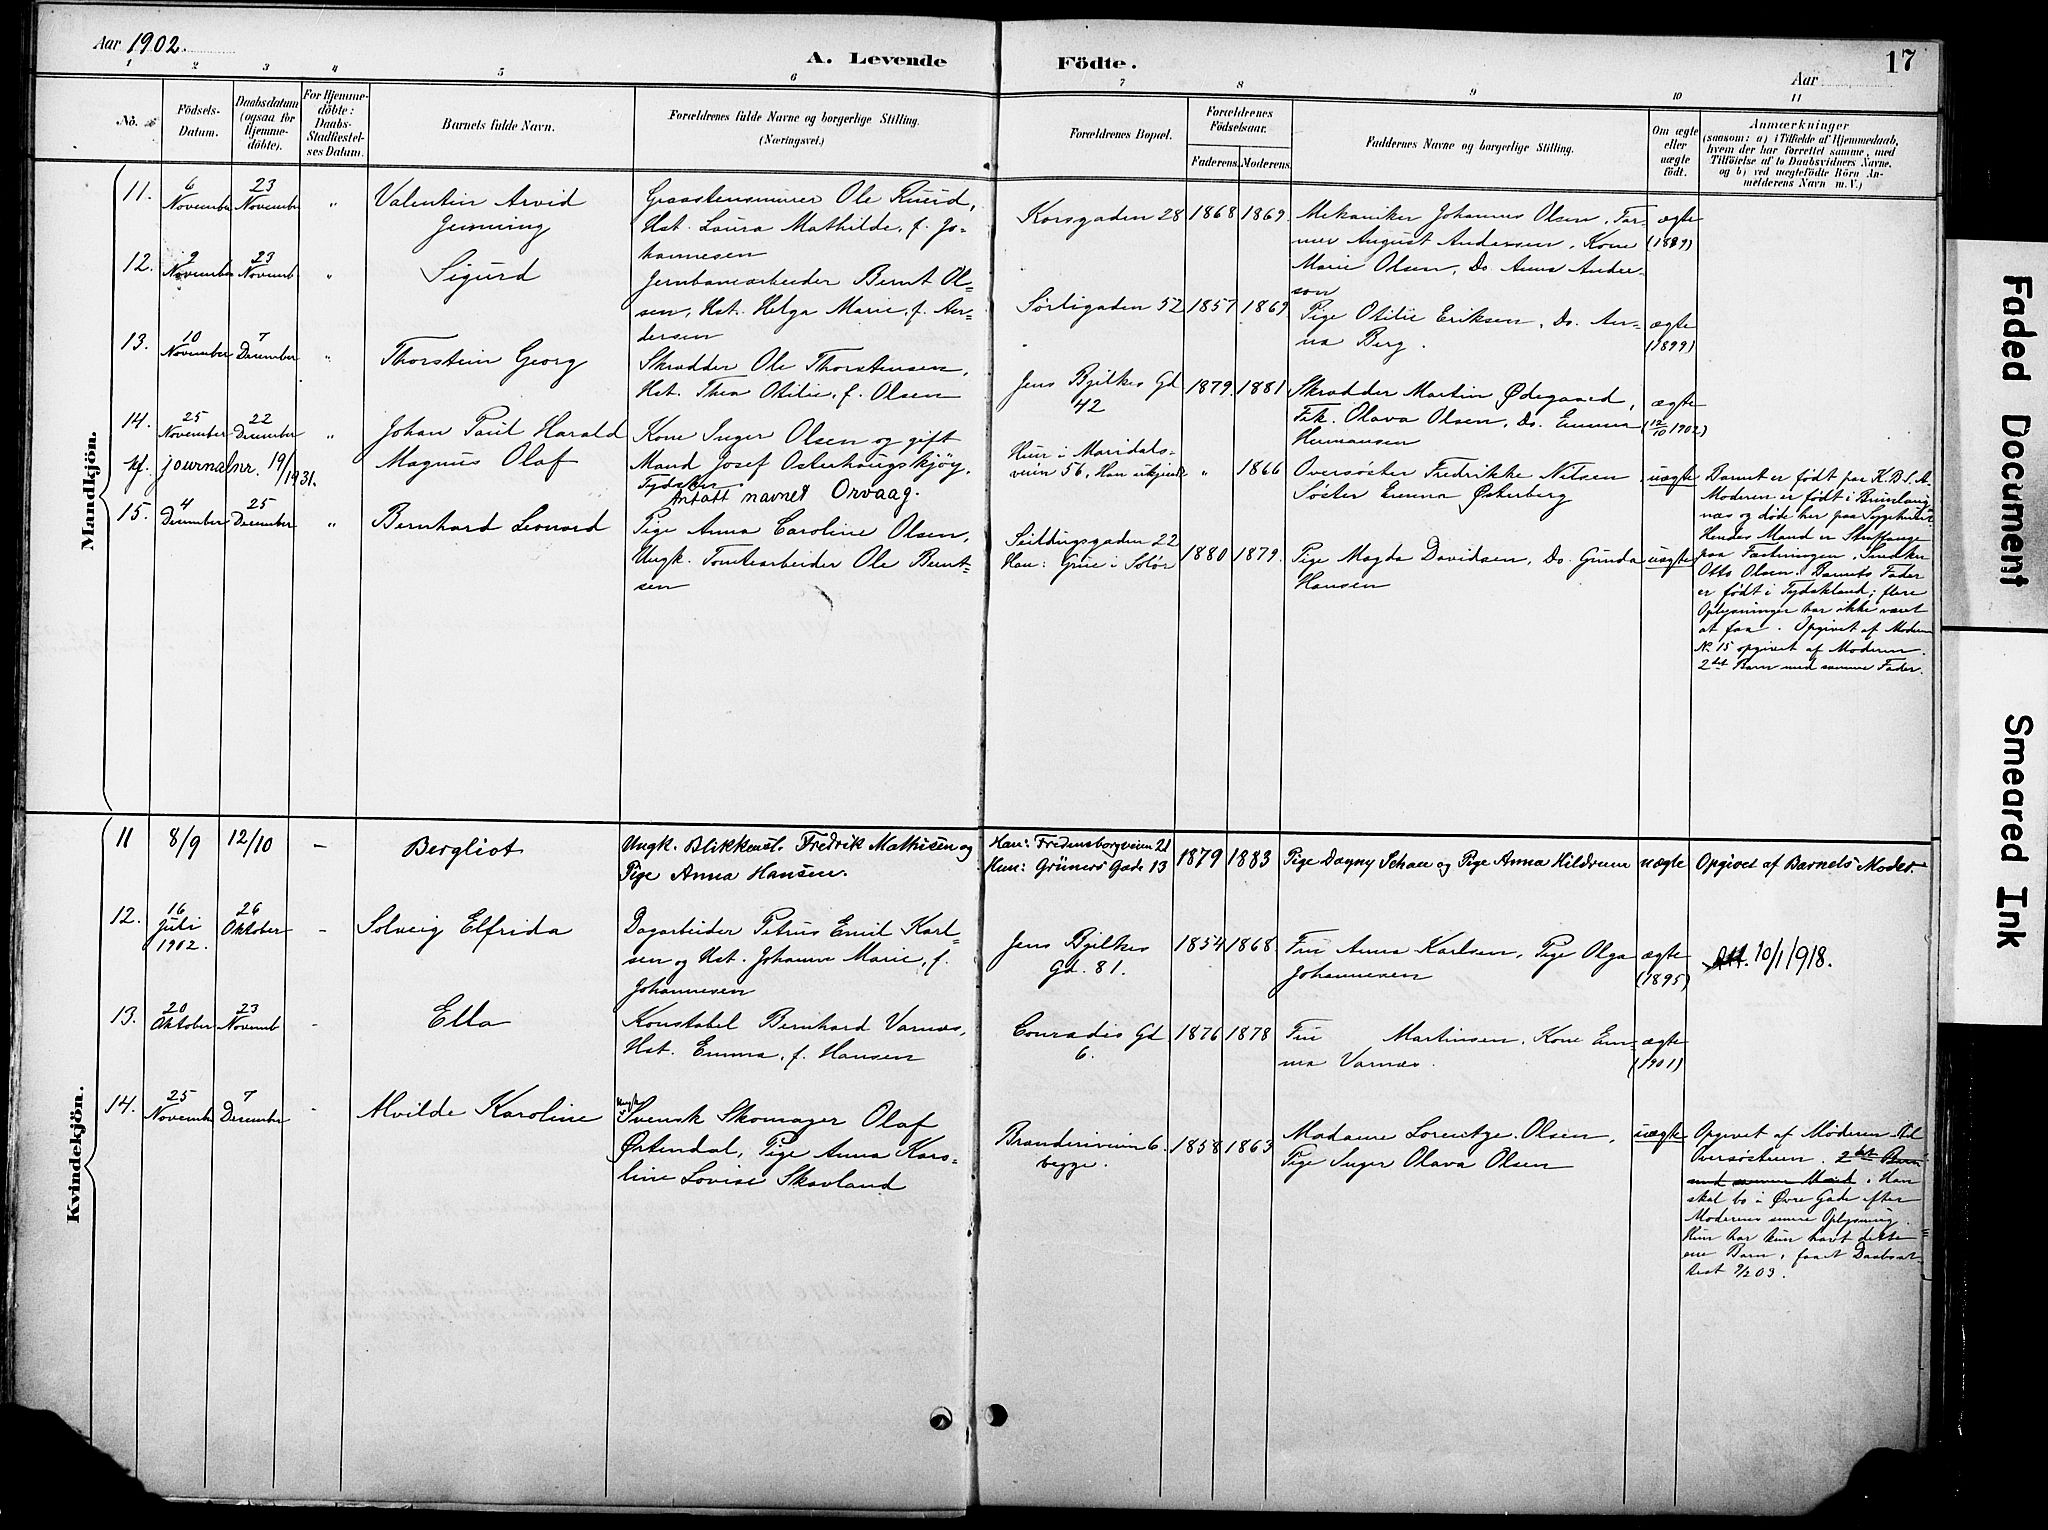 Aar 1902.
A. Levende Födte.
Aar
17
1 2 3 4 5 6 7 8 9 10 11
No.
Födsels-Datum.
Daabsdatum (ogsaa for Hjemme-döbte).
For Hjemme-döbte: Daabs-Stadfæstel-ses Datum.
Barnets fulde Navn.
Forældrenes fulde Navne og borgerlige Stilling.
(Næringsvei.)
Forældrenes Bopæl.
Forældrenes Födselsaar.
Faderens. Moderens.
Faddernes Navne og borgerlige Stilling.
Om ægte eller uægte födt.
Anmærkninger
(saasom: a) i Tilfælde af Hjemmedaab,
hvem der har forrettet samme, med
Tilföielse af to Daabsvidners Navne,
og b) ved uægtefödte Börn An-
melderens Navn m. V.)
Mandkjön.
11. 6 November 23 November " Valentin Arvid
Graastensmurer Ole Ruud,
Hst. Laura Mathilde, f. Jo-
hannesen
Korsgaden 28 1868 1869
Mekaniker Johannes Olsen, Far-
mer August Andersen, Kone
Marie Olsen, Do. Anna Ander-
son
ægte
(1889)
12. 2 November 23 Novemb " Sigurd
Jernbanearbeider Bernt Ol-
sen, Hst. Helga Marie, f. An-
dersen
Sörligaden 52 1857 1869
Pige Otilie Eriksen, Do. An-
na Berg.
ægte
(1899)
13. 10 November 7 December " Thorstein Georg
Skrædder Ole Thorstensen,
Hst. Thea Otilie, f. Olsen
Jens Bjelkes Gd
42
1879. 1881
Skrædder Martin Ødegaard,
Frk. Olava Olsen, Do. Emma
Hermansen
ægte
(12/10 1902)
14. 25 November 22 December " Johan Paul Harald
Magnus Olaf
kf. journalnr. 19/1931.
Kone Inger Olsen og gift
Mand Josef Osterhaugskjöy,
Tydsker
Antatt navnet Orvaag.
Hun i Maridals-
veien 56, Han ukjendt
" 1866
Oversöster Fredrikke Nilsen
Söster Emma Østerberg
uægte
Barnet er födt paa K.B.S.A.
Moderen er födt i Brunlang-
næs og döde her paa Sygehuset
Hendes Mand er Straffange
paa Fæstningen, Snedker
Otto Olsen. Barnets Fader
er födt i Tydskland; flere
Oplysninger har ikke været
at faa. Opgivet af Moderen
15. 4 December 25 December " Bernhard Leonard
Pige Anna Caroline Olsen,
Ungk. Tomtearbeider Ole Bernt-
sen
Seildugsgaden 22
Han: Grue i Solör
1880 1879.
Pige Magda Davidsen, Do. Gunda
Hansen
uægte
No. 15 opgivet af Moderen.
2det Barn med samme Fader.
Kvindekjön.
11 8/9 12/10 – Bergliot
Ungk. Blikkensl. Fredrik Mathisen og
Pige Anna Hansen.
Han: Fredensborgveien 21
Hun: Grüners Gade 13
1879 1883
Pige Dagny Schau og Pige Anna Hildrum
uægte
Opgivet af Barnets Moder.
12. 16 Juli 1902. 26 Oktober – Solveig Elfrida
Dagarbeider Petrus Emil Karl-
sen og Hst. Johanne Marie, f.
Johannesen
Jens Bjelkes
Gd. 81.
1854 1868
Fru Anna Karlsen, Pige Olga
Johannesen
ægte
(1895)
Att. 10/1 1918.
13. 20 Oktober 23 Novemb - Ella
Konstabel Bernhard Varnæs,
Hst. Emma, f. Hansen
Conradis Gd
6.
1876 1878
Fru Martinsen, Kone Em-
ma Varnæs.
ægte
(1901)
14. 25 Novemb 7 December - Alvilde Karoline
Ungk.
Svensk Skomager Olaf
Østendal, Pige Anna Karo-
line Lovise Skavland
Branderiveien 6.
begge.
1858 1863
Madame Lorentze Olsen,
Pige Inger Olava Olsen
uægte
Opgivet af Moderen til
Oversösteren. 2det Barn
med samme Mand. Han
skal bo i Øvre Gade efter
Moderens senere Oplysning.
Hun har kun havt dette
ene Barn, faaet Daabsat-
test 9/2 03.
Faded Document
Smeared Ink